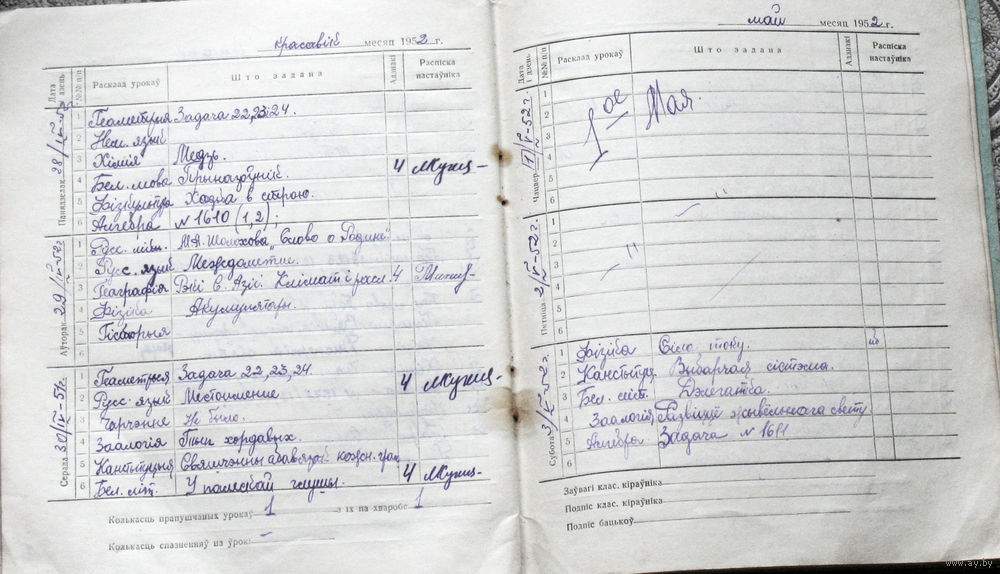 красавік месяц 1952 г.
Дата дзень №№ п/п Расклад урокаў Што задана Адзнакі Распіска настаўніка
Панядзелак 28/IV-52г.
1 Геаметрыя Задача 22,23,24.
2 Ням. язык
3 Хімія Медзь.
4 Бел. мова Прыназоўнік. 4
5 Фізкультура Хадьба в строю.
6 Алгебра № 1610 (1,2);
Аўторак 29/IV-52г.
1 Русс. літ. М.А. Шолохова „Слово о Родине"
2 Русс. язык Междометие.
3 Геаграфія Рэкі С. Азіі. Клімат і расл. 4
4 Фізіка Акумулятары.
5 Гісторыя
6
Серада 30/IV-51г.
1 Геаметрыя Задача 22,23,24. 4
2 Русс. язык Местоимение
3 Чарчэнне Не было.
4 Заалогія Тып хордавых.
5 Канстытуцыя Свяшчэнны абавязак кожн. гр.
6 Бел. літ. У палескай глушы. 4
Колькасць прапушчаных урокаў 1 з іх па хваробе 1
Колькасць спазненняў на ўрокі –
май месяц 1952 г.
Дата і дзень №№ п/п Расклад урокаў Што задана Адзнакі Распіска настаўніка
Чацвер 1/V-52г.
1
2
3
4
5
6
1ое Мая.
Пятніца 2/V-52г.
1
2
3
4
5
6
— " —"
Субота 3/V-52г.
1 Фізіка Сіла току.
2 Канстытуц. Выбарчая сістэма.
3 Бел. літ. Дэлегатка.
4 Заалогія Развіццё жывёльнага свету
5 Алгебра Задача № 1611
6
Заўвагі клас. кіраўніка
Подпіс клас. кіраўніка
Подпіс бацькоў
www.ay.by